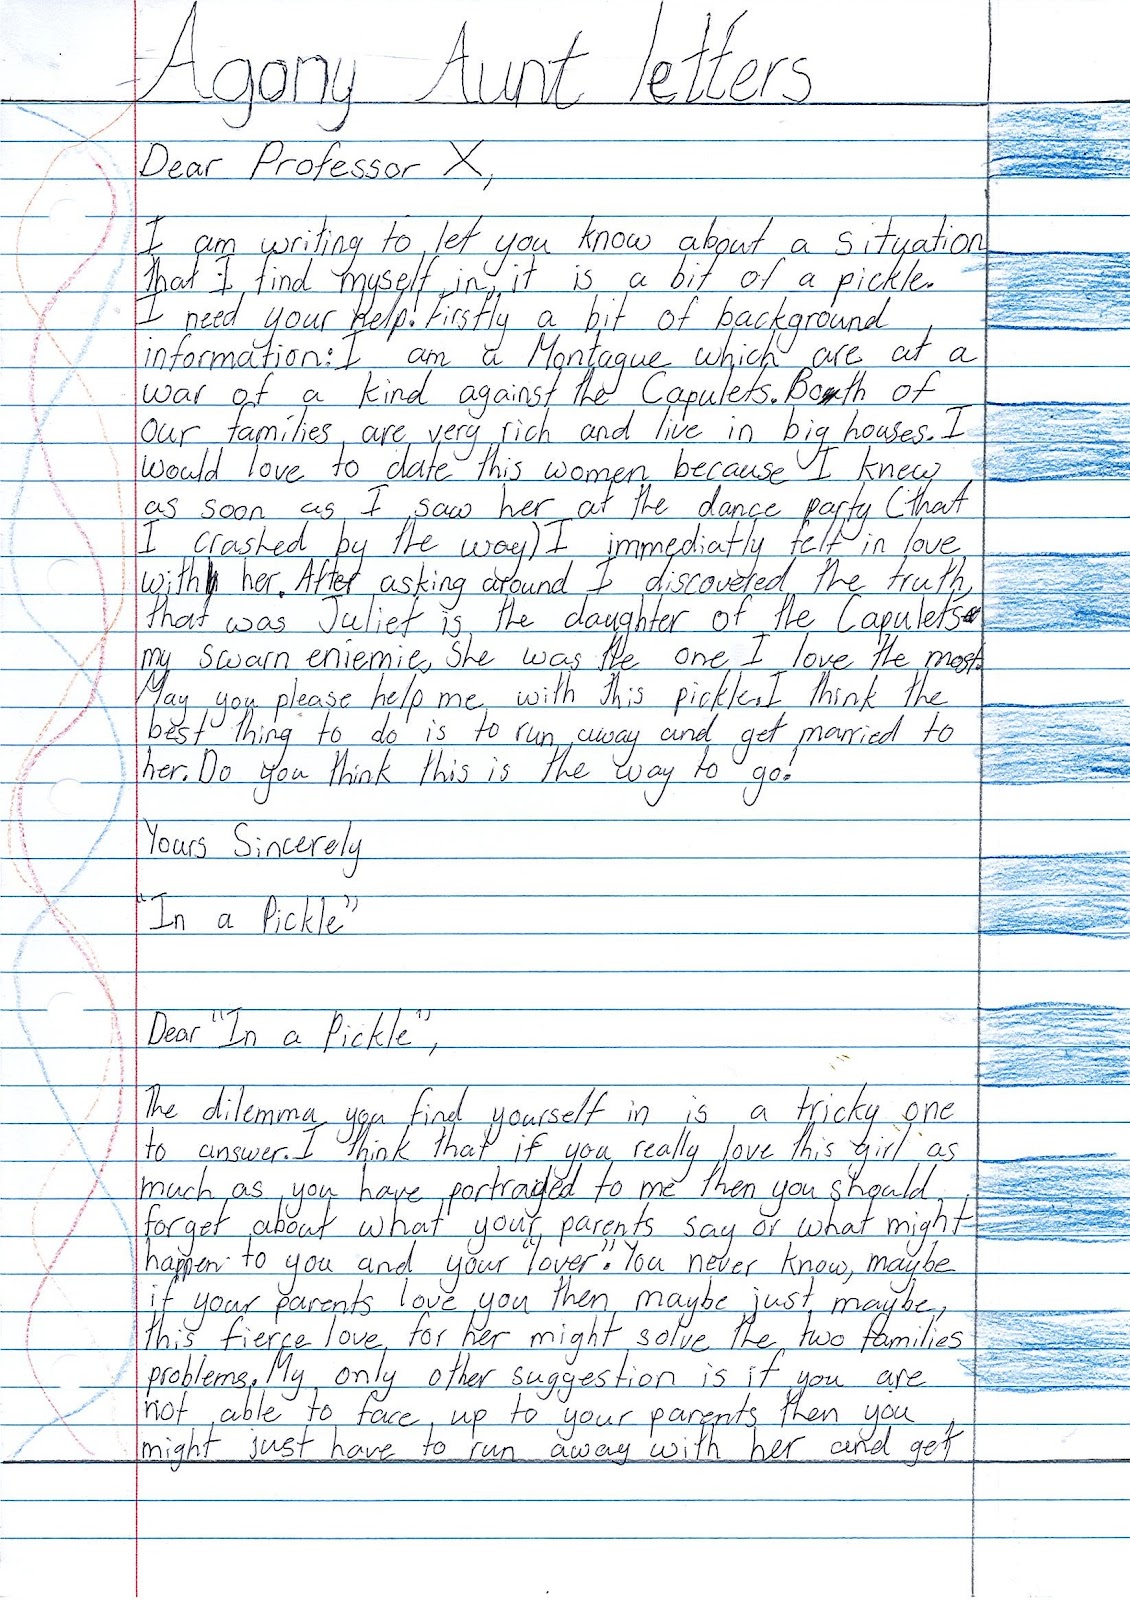 Agony Aunt letters
Dear Professor X,
I am writing to let you know about a situation
that I find myself in, it is a bit of a pickle.
I need your help! Firstly a bit of background
information: I am a Montague which are at a
war of a kind against the Capulets. Both of
our families are very rich and live in big houses. I
would love to date this women because I knew
as soon as I saw her at the dance party (that
I crashed by the way) I immediatly felt in love
with her. After asking around I discovered the truth,
that was Juliet is the daughter of the Capulets
my swarn eniemie, She was the one I love the most.
May you please help me with this pickle. I think the
best thing to do is to run away and get married to
her. Do you think this is the way to go?
Yours Sincerely
"In a Pickle"
Dear "In a Pickle",
The dilemma you find yourself in is a tricky one
to answer. I think that if you really love this girl as
much as you have portraged to me then you should
forget about what your parents say or what might
happen to you and your "lover". You never know, maybe
if your parents love you then maybe just maybe,
this fierce love for her might solve the two families
problems. My only other suggestion is if you are
not able to face up to your parents then you
might just have to run away with her and get